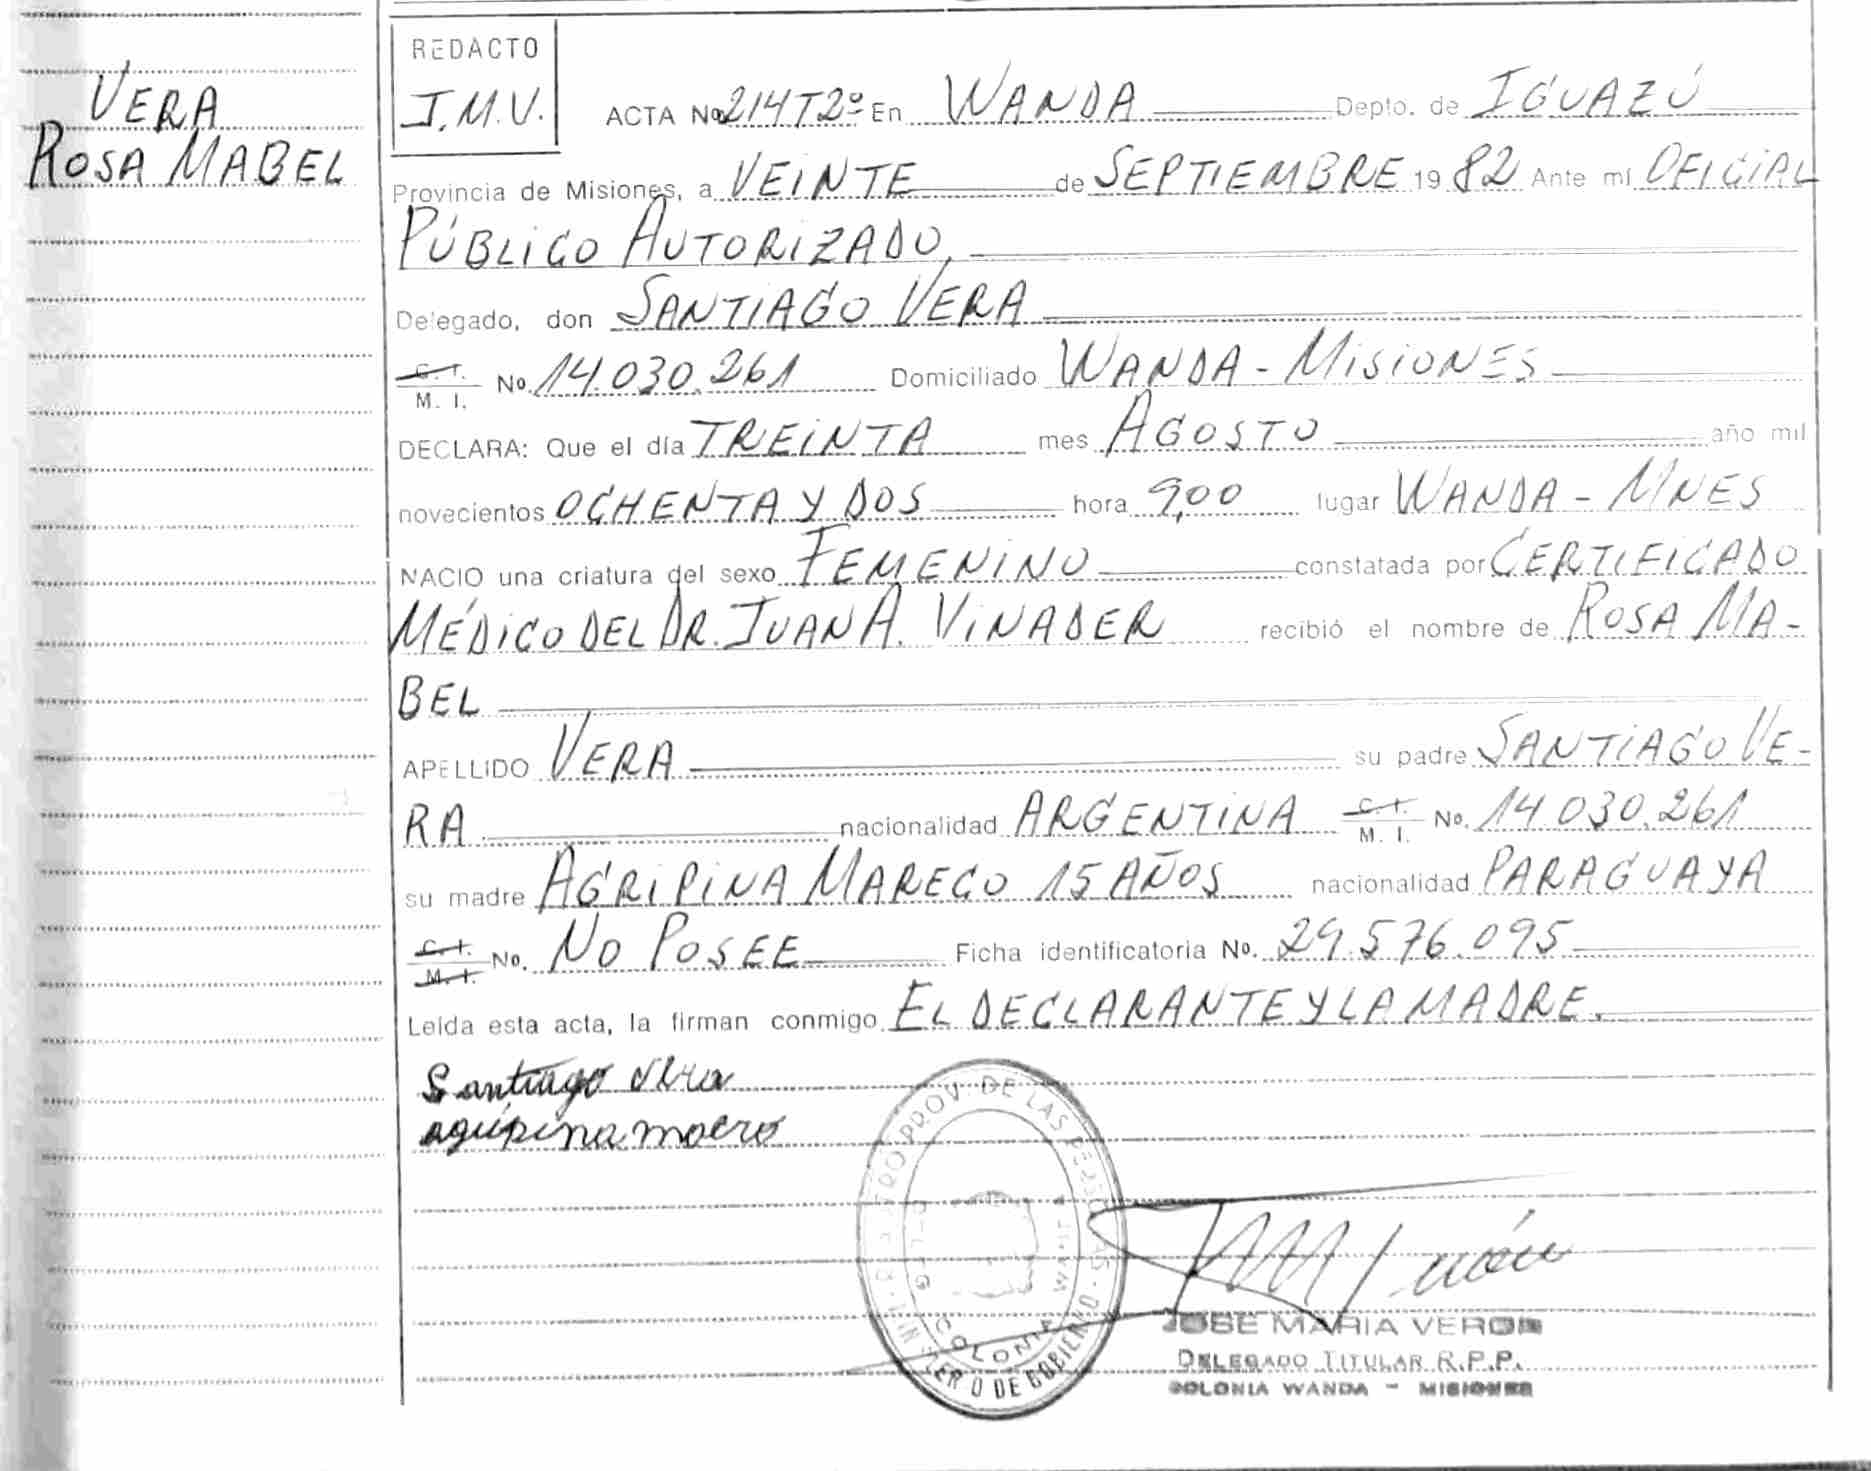 VERA
ROSA MABEL
REDACTO
J.M.V.
ACTA No 214T2º En WANDA Depto. de IGUAZÚ
Provincia de Misiones, a VEINTE de SEPTIEMBRE 1982 Ante mí OFICIAL
PÚBLICO AUTORIZADO,
Delegado, don SANTIAGO VERA
C. I. M. I. No. 14.030.261 Domiciliado WANDA - MISIONES
DECLARA: Que el día TREINTA mes AGOSTO año mil
novecientos OCHENTA Y DOS hora 9,00 lugar WANDA - MNES
NACIO una criatura del sexo FEMENINO constatada por CERTIFICADO
MÉDICO DEL DR. JUAN A. VINADER recibió el nombre de ROSA MA-
BEL
APELLIDO VERA su padre SANTIAGO VE-
RA nacionalidad ARGENTINA C. I. M. I. No. 14.030.261
su madre AGRIPINA MARECO 15 AÑOS nacionalidad PARAGUAYA
C. I. M. I. No. NO POSEE Ficha identificatoria No. 29.576.095
Leída esta acta, la firman conmigo EL DECLARANTE Y LA MADRE.
Santiago Vera
agripina
PROV. DE LAS PERSONAS
COLONIA WANDA
MINISTERIO DE GOBIERNO
JOSE MARIA VERON
DELEGADO TITULAR R.P.P.
COLONIA WANDA - MISIONES